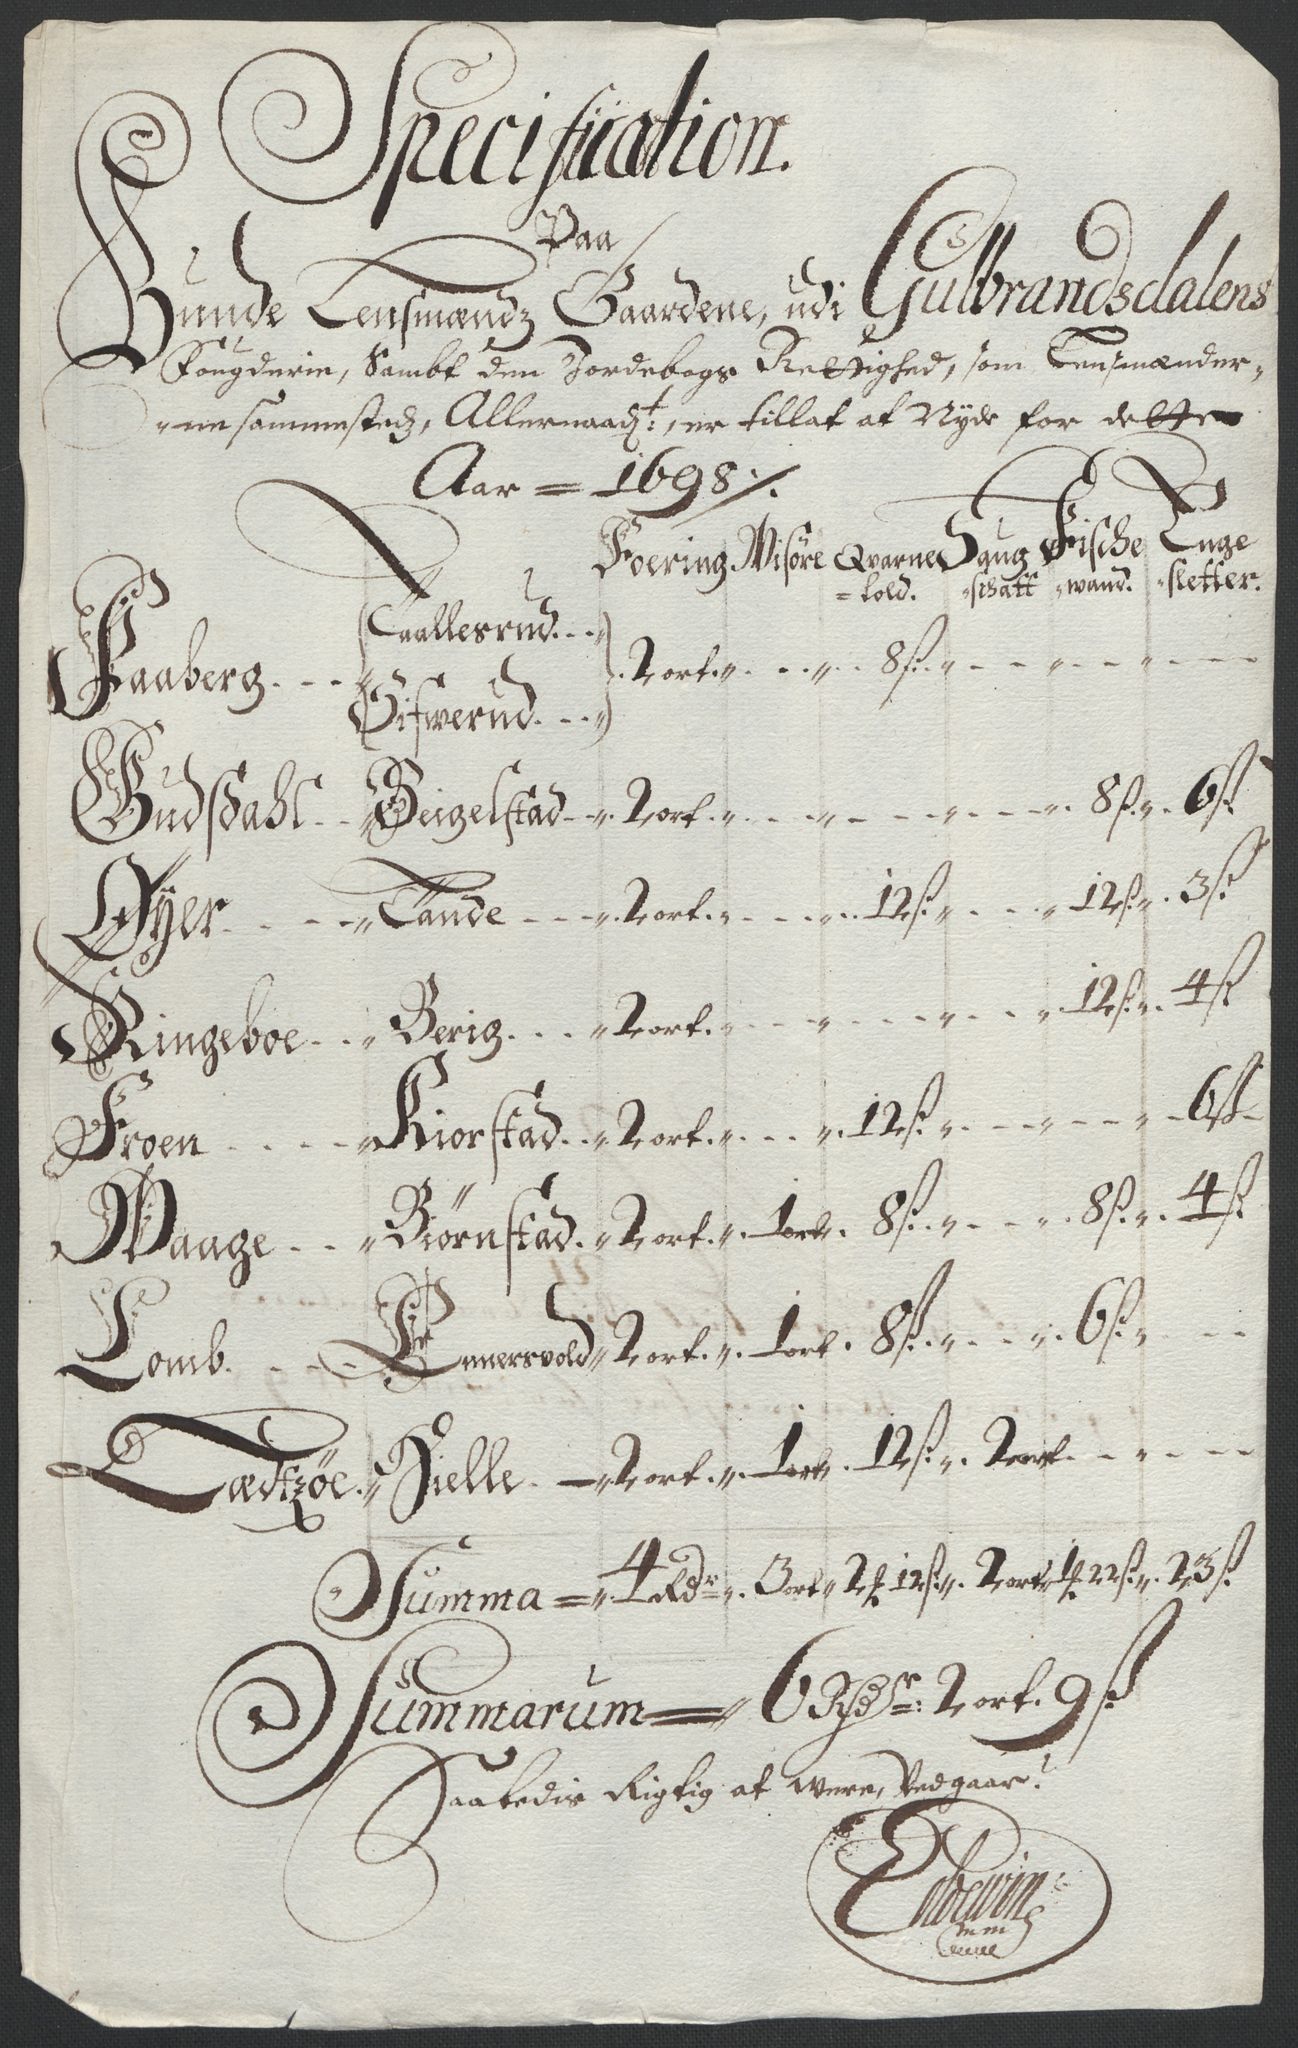 Specification.
Paa
Bunde Lensmændz Gaardene, udi Gulbrandsdalens
Fougderie, Sambt den Jordebogs Rettighed, som Lensmænder-
-ne sammestedz, Allernaadst:, er tillat at Nyde for dette
Aar = 1698 ./.
Foering. Wisöre Qvarne Saug Fische Enge
=told. =schatt =wand. =sletter.
Taallesrud
Faaberg 2 ort. 8 s.
Sifwerud
Gudsdahl Seigelstad 2 ort. 8 s. 6 s.
Øÿer Tande 2 ort. 12 s. 12 s. 3 s.
Ringeboe Berig 2 ort. 12 s. 4 s.
Froen Kiorstad 2 ort. 12 s. 6 s.
Waage Biørnstad 2 ort. 1 ort. 8 s. 8 s. 4 s.
Lomb. Ennersvold 2 ort. 1 ort. 8 s. 6 s.
Læsøe Kielle 2 ort. 1 ort. 12 s. 2 ort
Summa = 4 Rdr. 3 ort 2 ℔ 12 s. 2 ort 1 ℔ 22 s. 23 s.
Summarum = 6 Rdr: 2 ort. 9 s
Saaledis Rigtig at were, Vedgaar
mm